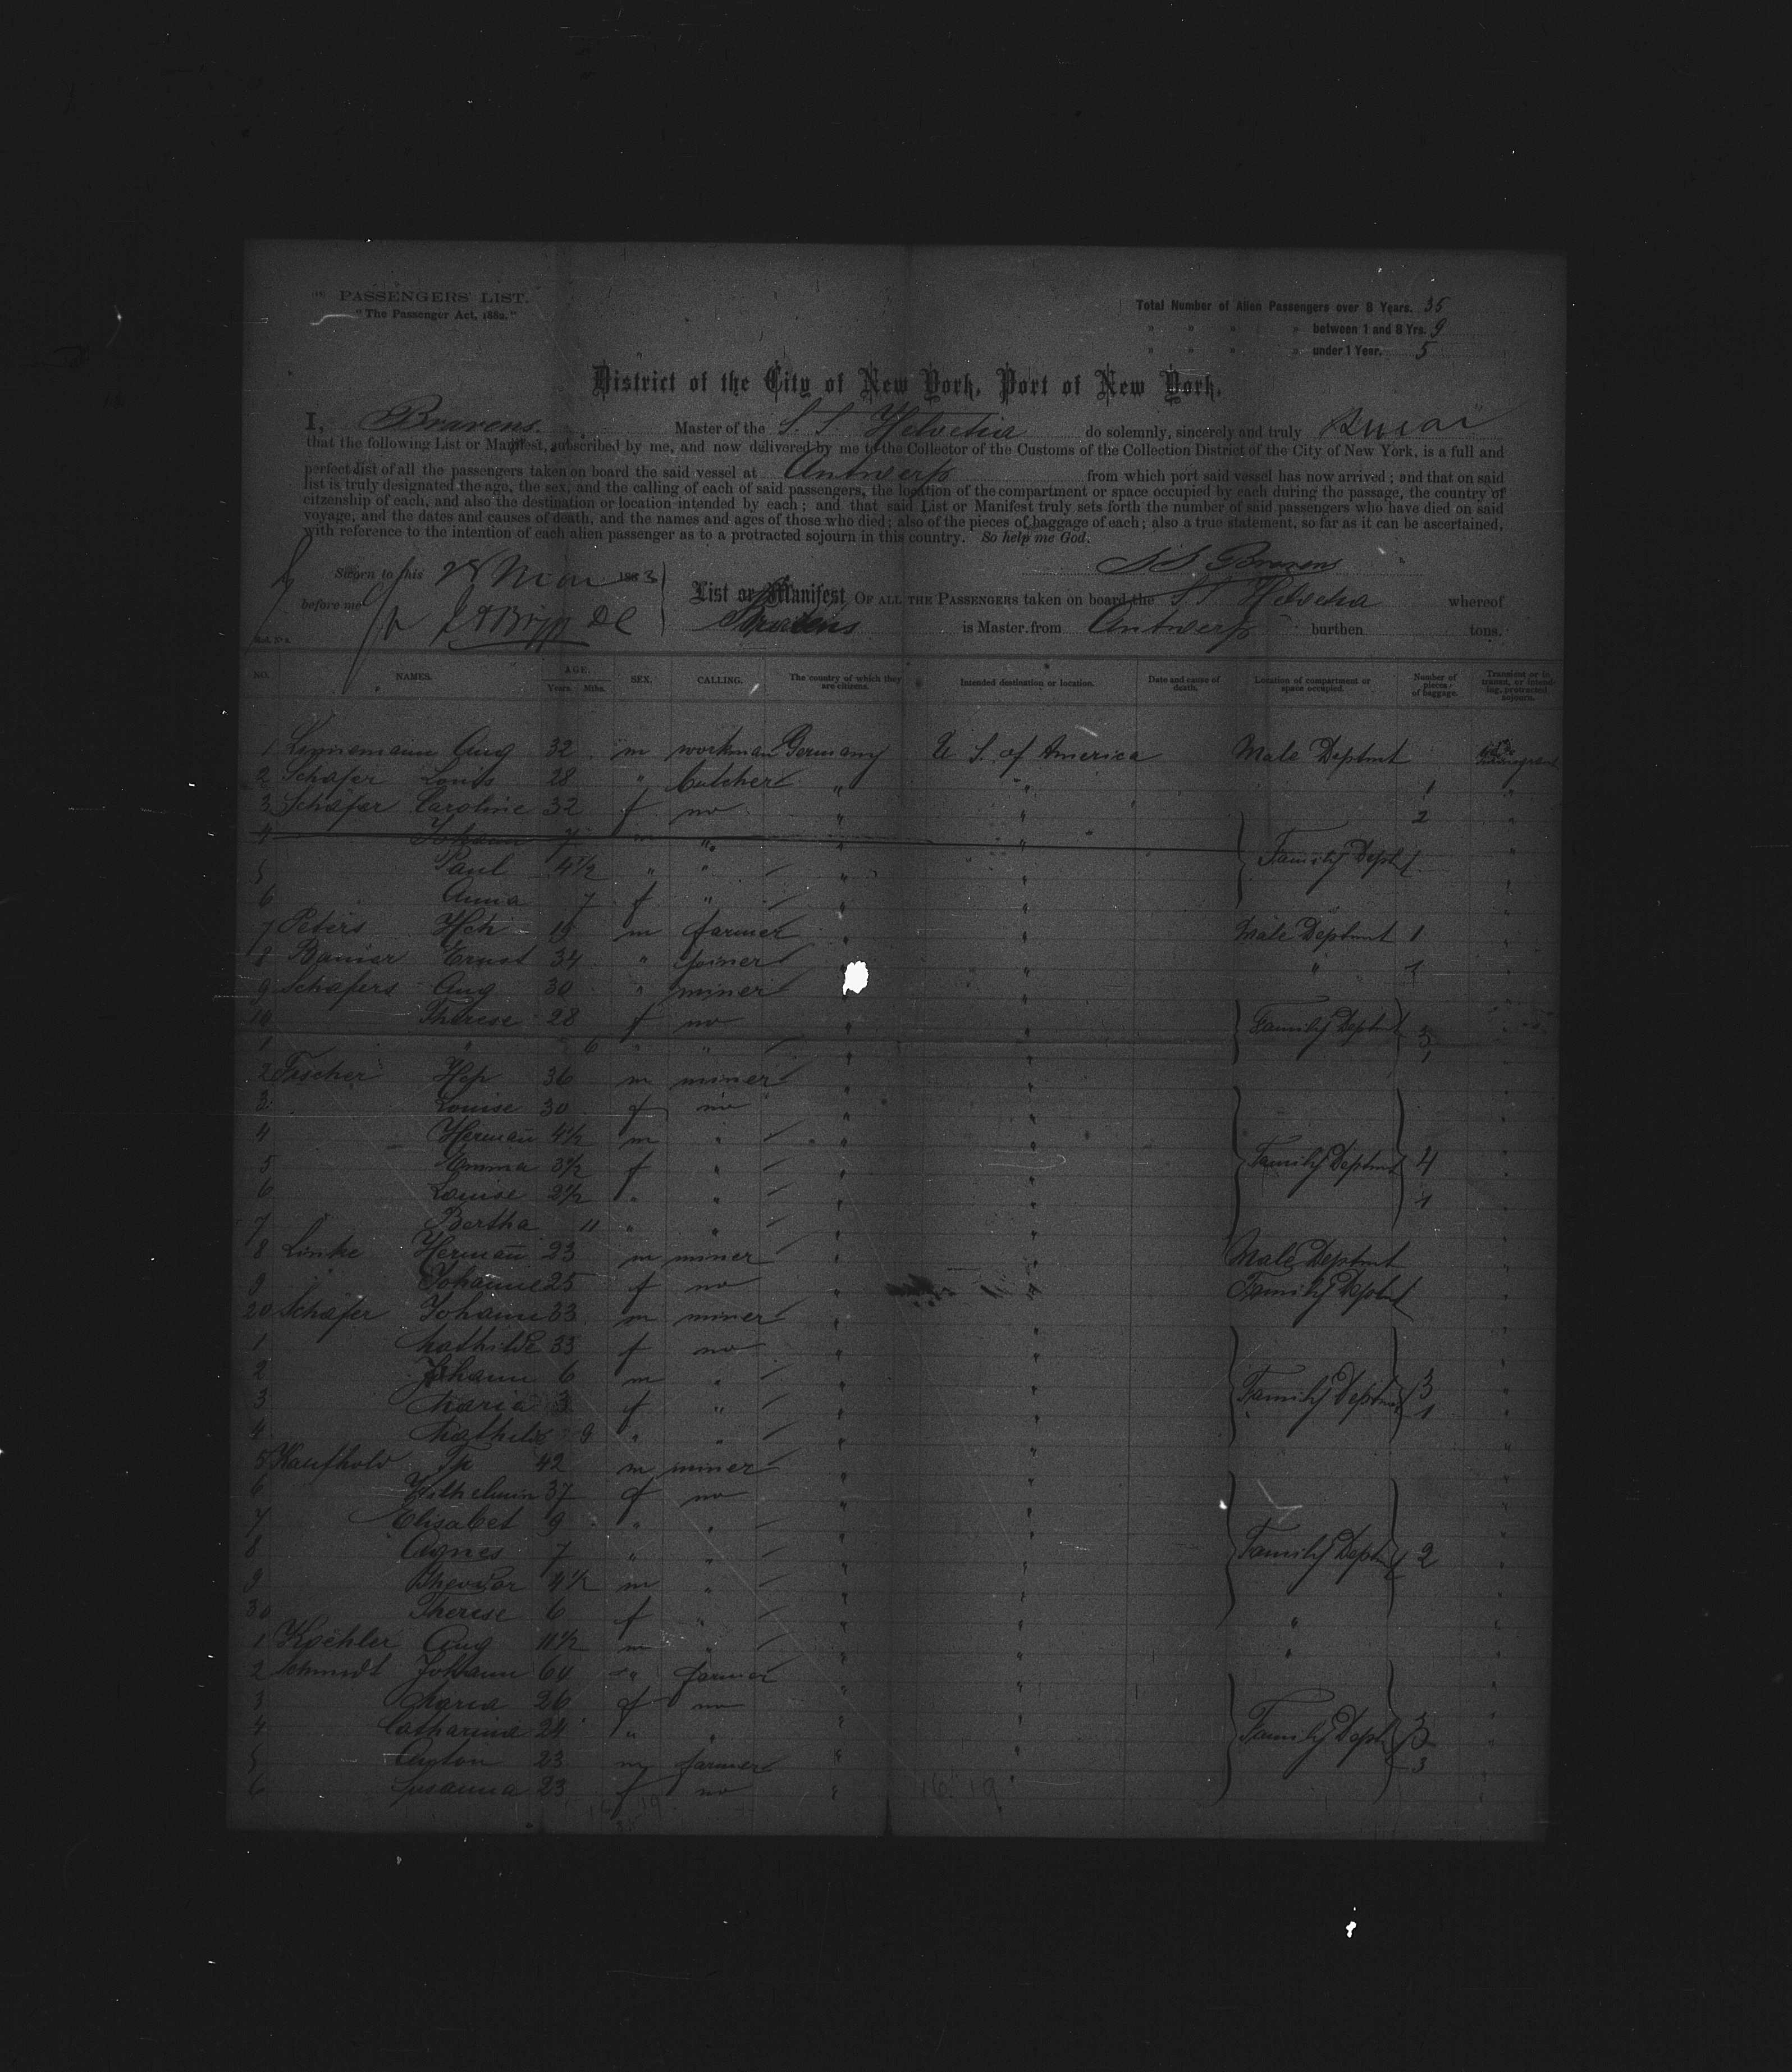 PASSENGERS' LIST.
"The Passenger Act, 1882."
Total Number of Alien Passengers over 8 Years. 35
" " " " between 1 and 8 Yrs. 9
" " " " under 1 Year. 5
District of the City of New York, Port of New York.
I, Bravens. Master of the S. S Helvetia do solemnly, sincerely and truly swear
that the following List or Manifest, subscribed by me, and now delivered by me to the Collector of the Customs of the Collection District of the City of New York, is a full and
perfect list of all the passengers taken on board the said vessel at Antwerp from which port said vessel has now arrived; and that on said
list is truly designated the age, the sex, and the calling of each of said passengers, the location of the compartment or space occupied by each during the passage, the country of
citzenship of each, and also the destination or location intended by each; and that said List or Manifest truly sets forth the number of said passengers who have died on said
voyage, and the dates and causes of death, and the names and ages of those who died; also of the pieces of baggage of each; also a true statement, so far as it can be ascertained,
with reference to the intention of each alien passenger as to a protracted sojourn in this country. So help me God.
Bravens
Sworn to this 28 1883
before me
List or Manifest OF ALL THE PASSENGERS taken on board the S S Helvetia whereof
Bravens is Master, from Antwerp burthen tons.
NO. NAMES. AGE. Years. Mths. SEX. CALLING. The country of which they are citizens. Intended destination or location. Date and cause of death. Location of compartment or space occupied. Number of pieces of baggage. Transient or in transit, or intending protracted sojourn.
1 Aug 32 m workman Germany U S. of America Male Deptmt
2 Schäfer Louis 28 " butcher " " 1 "
3 Schäfer Caroline 32 f no " " 2 "
4 Johann 7 m " " "
5 Paul 4 1/2 " " " " Family Dept 1
6 Anna 7 f " " "
7 Peters Hch 19 m farmer " " Male Deptmt 1
8 Ernst 34 " joiner " " 1
9 Schäfers Aug 30 " miner "
10 Therese 28 f no " " Family Deptmt 3
1 " 6 " " " "
2 Fischer 36 m miner " "
3 Louise 30 f no " "
4 Herman̄ 4 1/2 m " " "
5 Emma 3 1/2 f " " " Family Deptmt 4
6 Louise 2 1/2 " " " " 1
7 Bertha 11 " " " "
8 Linke Herman̄ 23 m miner " " Male Deptmt
9 Johanne 25 f no " " Family Deptmt
20 Schäfer Johann 33 m miner " "
1 Mathilde 33 f no " "
2 Johann 6 m " " "
3 Maria 3 f " " " Family Deptmt 3
4 Mathilde 9 " " " " 1
5 Kaufhold 42 m miner " "
6 Wilhelmin 37 f no " "
7 Elisabet 9 " " " "
8 Agnes 7 " " " " Family Deptm 2
9 Theodor 4 1/2 m " " "
30 Therese 6 f " " " "
1 Koehler Aug 11 1/2 m " " " "
2 Schmidt Johann 64 " farmer " "
3 Maria 26 f no " "
4 Catharina 24 " " " " Family Dept 3
5 Anton 23 m farmer " " 3
6 Susanna 23 f no " "
16 19